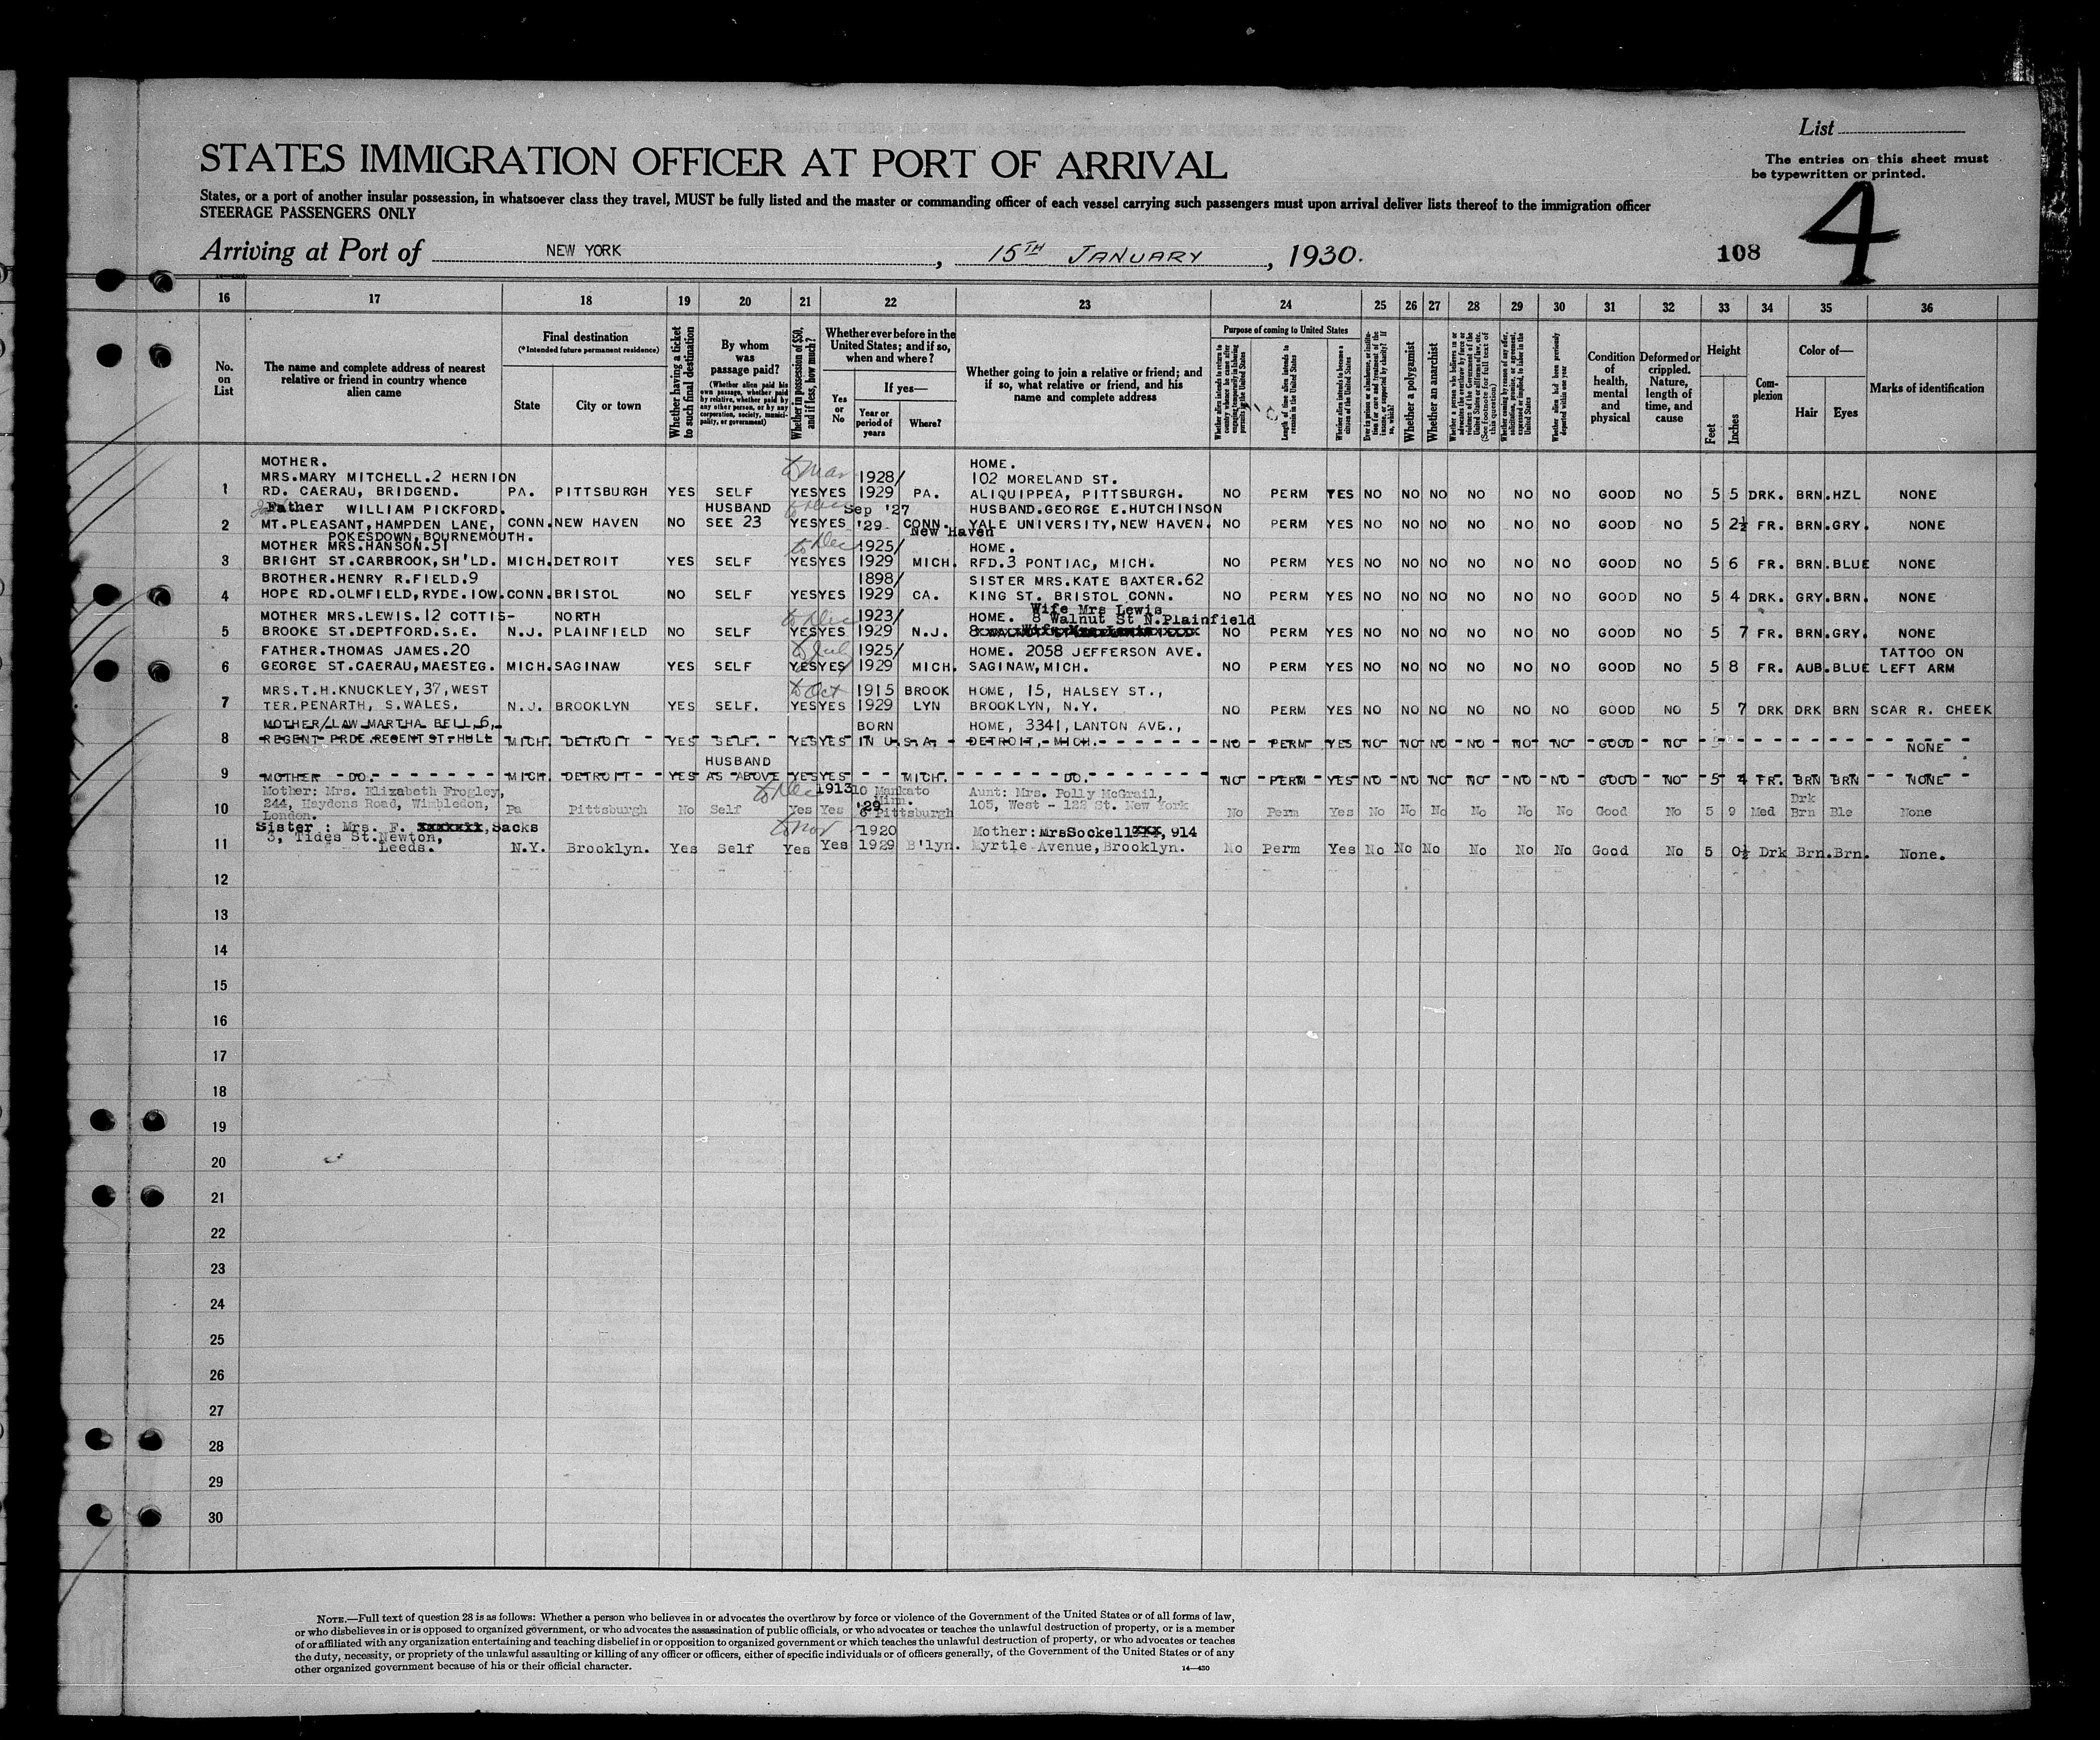 List
The entries on this sheet must
be typewritten or printed.
STATES IMMIGRATION OFFICER AT PORT OF ARRIVAL
States, or a port of another insular possession, in whatsoever class they travel, MUST be fully listed and the master or commanding officer of each vessel carrying such passengers must upon arrival deliver lists thereof to the immigration officer
STEERAGE PASSENGERS ONLY
Arriving at Port of NEW YORK, 15TH JANUARY, 1930.
108 4
16 17 18 19 20 21 22 23 24 25 26 27 28 29 30 31 32 33 34 35 36
No. on List
The name and complete address of nearest relative or friend in country whence alien came
Final destination
(*Intended future permanent residence)
State
City or town
Whether having a ticket to such final destination
By whom was passage paid?
(Whether alien paid his own passage, whether paid by relative, whether paid by any other person, or by any corporation, society, municipality, or government)
Whether in possession of $50, and if less, how much?
Whether ever before in the United States; and if so, when and where?
Yes or No
If yes—
Year or period of years
Where?
Whether going to join a relative or friend; and if so, what relative or friend, and his name and complete address
Purpose of coming to United States
Whether alien intends to return to country whence he came after engaging temporarily in laboring pursuits in the United States
Length of time alien intends to remain in the United States
Whether alien intends to become a citizen of the United States
Ever in prison or almshouse, or institution for care and treatment of the insane, or supported by charity? If so, which?
Whether a polygamist
Whether an anarchist
(See footnote for full text of this question)
Whether alien had been previously deported within one year
Condition of health, mental and physical
Deformed or crippled. Nature, length of time, and cause
Height
Feet
Inches
Complexion
Color of—
Hair
Eyes
Marks of identification
MOTHER. to Mar HOME.
MRS.MARY MITCHELL.2 HERNION 1928/ 102 MORELAND ST.
1 RD. CAERAU, BRIDGEND. PA. PITTSBURGH YES SELF YES YES 1929 PA. ALIQUIPPEA, PITTSBURGH. NO PERM YES NO NO NO NO NO NO GOOD NO 5 5 DRK. BRN. HZL NONE
Father WILLIAM PICKFORD. HUSBAND to Dec Sep '27 HUSBAND.GEORGE E.HUTCHINSON
2 MT.PLEASANT,HAMPDEN LANE, CONN. NEW HAVEN NO SEE 23 YES YES '29 CONN. YALE UNIVERSITY,NEW HAVEN. NO PERM YES NO NO NO NO NO NO GOOD NO 5 2½ FR. BRN. GRY. NONE
POKESDOWN,BOURNEMOUTH. New Haven
MOTHER MRS.HANSON.51 to Dec 1925/ HOME.
3 BRIGHT ST.CARBROOK,SH'LD. MICH. DETROIT YES SELF YES YES 1929 MICH. RFD.3 PONTIAC, MICH. NO PERM YES NO NO NO NO NO NO GOOD NO 5 6 FR. BRN. BLUE NONE
BROTHER.HENRY R.FIELD.9 1898/ SISTER MRS.KATE BAXTER.62
4 HOPE RD.OLMFIELD,RYDE.IOW. CONN. BRISTOL NO SELF YES YES 1929 CA. KING ST. BRISTOL CONN. NO PERM YES NO NO NO NO NO NO GOOD NO 5 4 DRK. GRY. BRN. NONE
MOTHER MRS.LEWIS.12 COTTIS- NORTH to Dec 1923/ HOME. Wife Mrs Lewis
8 Walnut St N.Plainfield
5 BROOKE ST.DEPTFORD.S.E. N.J. PLAINFIELD NO SELF YES YES 1929 N.J. NO PERM YES NO NO NO NO NO NO GOOD NO 5 7 FR. BRN. GRY. NONE
FATHER.THOMAS JAMES.20 to July 1925/ HOME. 2058 JEFFERSON AVE. TATTOO ON
6 GEORGE ST.CAERAU,MAESTEG. MICH. SAGINAW YES SELF YES YES 1929 MICH. SAGINAW,MICH. NO PERM YES NO NO NO NO NO NO GOOD NO 5 8 FR. AUB. BLUE LEFT ARM
MRS.T.H.KNUCKLEY,37,WEST to Oct 1915 BROOK HOME, 15, HALSEY ST.,
7 TER.PENARTH, S.WALES. N.J. BROOKLYN YES SELF. YES YES 1929 LYN BROOKLYN, N.Y. NO PERM YES NO NO NO NO NO NO GOOD NO 5 7 DRK DRK BRN SCAR R. CHEEK
MOTHER/LAW MARTHA BELL 6, BORN HOME, 3341, LANTON AVE.,
8 REGENT PRDE.REGENT ST.HULL MICH. DETROIT YES SELF. YES YES IN U.S.A. DETROIT, MICH. NO PERM YES NO NO NO NO NO NO GOOD NO NONE
HUSBAND
9 MOTHER DO. MICH. DETROIT YES AS ABOVE YES YES MICH. DO. NO PERM YES NO NO NO NO NO NO GOOD NO 5 4 FR. BRN BRN NONE
Mother: Mrs. Elizabeth Frogley, to Dec 1913 10 Mankato Aunt: Mrs. Polly McGrail, Drk
244, Haydons Road, Wimbledon, Minn. 105, West - 122 St. New York
10 London. Pa Pittsburgh No Self Yes Yes '29 6 Pittsburgh No Perm Yes No No No No No No Good No 5 9 Med Brn Ble None
Sister : Mrs. F. Sacks to Nov 1920 Mother: Mrs Sockell, 914
3, Tides St.Newton,
11 Leeds. N.Y. Brooklyn. Yes Self Yes Yes 1929 B'lyn. Myrtle Avenue,Brooklyn. No Perm Yes No No No No No No Good No 5 0½ Drk Brn. Brn. None.
12
13
14
15
16
17
18
19
20
21
22
23
24
25
26
27
28
29
30
NOTE.—Full text of question 28 is as follows: Whether a person who believes in or advocates the overthrow by force or violence of the Government of the United States or of all forms of law,
or who disbelieves in or is opposed to organized government, or who advocates the assassination of public officials, or who advocates or teaches the unlawful destruction of property, or is a member
of or affiliated with any organization entertaining and teaching disbelief in or opposition to organized government or which teaches the unlawful destruction of property, or who advocates or teaches
the duty, necessity, or propriety of the unlawful assaulting or killing of any officer or officers, either of specific individuals or of officers generally, of the Government of the United States or of any
other organized government because of his or their official character.
14—430